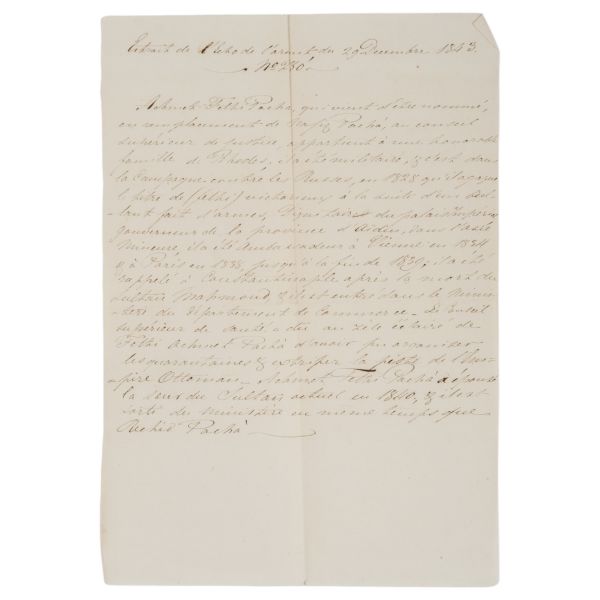 Extrait de l'Echo de l'orient du 29 Decembre 1843.
No. 280.
Achmet Fethi Pacha, qui vient d'être nommé,
en remplacement de Nafiz Pacha, au conseil
supérieur de justice, appartient à une honorable
famille de Rhodes, il a été militaire, & c'est dans
la Campagne contre les Russes, en 1828 qu'il a gagné
le titre de (fethi) victorieux à la suite d'un écla-
tant fait d'armes, Dignitaire du palais Imperial
gouverneur de la province d'Aidin, dans l'asie
Mineure, il a été Ambassadeur à Vienne en 1834
& à Paris en 1838 jusqu'à la fin de 1839, il a été
rappelé à Constantinople après la mort du
Sultan Mahmoud & il est entré dans le Minis-
tère du Département de Commerce. Le Conseil
supérieur de santé a dû au zèle éclairé de
Fethi Achmet Pacha d'avoir pu organiser
les quarantaines & extirper la peste de l'Em-
pire Ottoman. Achmet Fethi Pacha a épousé
la sœur du Sultan actuel en 1840, & il est
sorti du Ministère en même temps que
Rechid Pacha